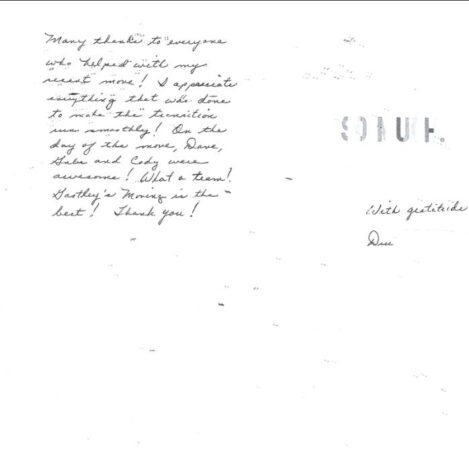 Many thanks to everyone
who helped with my
recent move! I appreciate
everything that was done
to make the transition
run smoothly! On the
day of the move, Dave,
Gabe and Cody were
awesome! What a team!
Moving is the
best! Thank you!
With gratitude